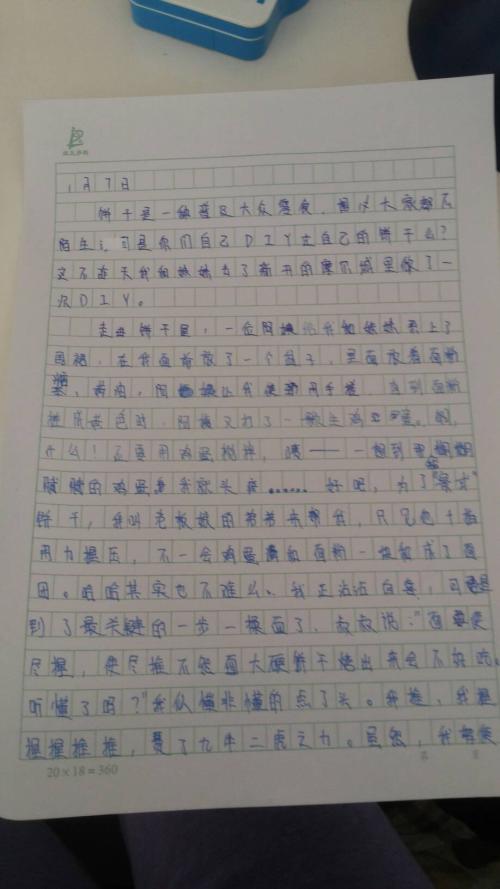 1月7日
饼干是一种普及大众零食,想必大家都不
陌生,可是你们自己DIY过自己的饼干么?
这不昨天我和妹妹去了新开的摩尔城里做了一
次DIY。
走进饼干屋,一位阿姨给我和妹妹系上了
围裙,在我面前放了一个盆子,里面放着面粉
糖、黄油,阿姨让我使用手搓,直到面粉
搓成黄色时,阿姨又打了一个生鸡蛋。啊,
什么!还要用鸡蛋搅拌,咦——一想到黏糊糊
腻腻的鸡蛋我就头疼……好吧,为了尝试
饼干,我叫老板娘的弟弟来帮我,只见他十指
用力握压,不一会鸡蛋和面粉一块就成了面
团。哈哈其实也不难么。我正沾沾自喜,可是
到了最关键的一步—揉面了,叔叔说:"面要使
尽揉,使尽推不然面太硬饼干烤出来会不好吃。
听懂了吗?"我似懂非懂的点了头。我推、我握
握握推推,费了九牛二虎之力。虽然,我
20×18=360
第 页